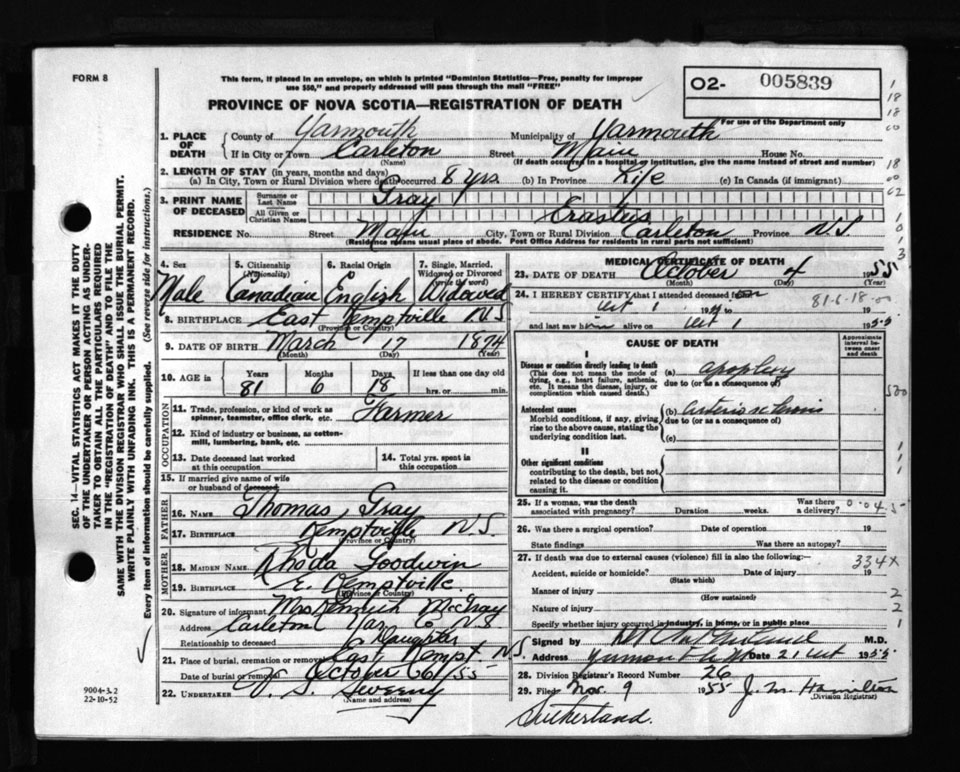 FORM 8
This form, if placed in an envelope, on which is printed "Dominion Statistics—Free, penalty for improper
use $50," and properly addressed will pass through the mail "FREE"
O2- 005839
PROVINCE OF NOVA SCOTIA—REGISTRATION OF DEATH
For use of the Department only
1. PLACE OF DEATH County of Yarmouth Municipality of Yarmouth
If in City or Town Carleton Street Main House No.
(Name) (If death occurred in a hospital or institution, give the name instead of street and number)
2. LENGTH OF STAY (in years, months and days)
(a) In City, Town or Rural Division where death occurred 8 yrs (b) In Province Life (c) In Canada (if immigrant)
3. PRINT NAME OF DECEASED
Surname or Last Name Gray
All Given or Christian Names Erastus
RESIDENCE No. Street Main City, Town or Rural Division Carleton Province N.S.
(Residence means usual place of abode. Post Office Address for residents in rural parts not sufficient)
4. Sex Male
5. Citizenship (Nationality) Canadian
6. Racial Origin English
7. Single, Married, Widowed or Divorced (write the word) Widowed
8. BIRTHPLACE East Kemptville N.S.
(Province or Country)
9. DATE OF BIRTH March 17 1874
(Month) (Day) (Year)
10. AGE in Years Months Days If less than one day old
81 6 18 hrs. or min.
OCCUPATION
11. Trade, profession, or kind of work as spinner, teamster, office clerk, etc. Farmer
12. Kind of industry or business, as cotton-mill, lumbering, bank, etc.
13. Date deceased last worked at this occupation
14. Total yrs. spent in this occupation
15. If married give name of wife or husband of deceased
FATHER
16. NAME Thomas Gray
17. BIRTHPLACE Kemptville N.S.
(Province or Country)
MOTHER
18. MAIDEN NAME Rhoda Goodwin
19. BIRTHPLACE E. Kemptville
(Province or Country)
20. Signature of informant Mrs McGray
Address Carleton Yar Co N.S.
Relationship to deceased Daughter
21. Place of burial, cremation or removal East Kempt. N.S.
Date of burial or removal October 6/55
22. UNDERTAKER V. S. Sweeny
(Name and address)
MEDICAL CERTIFICATE OF DEATH
23. DATE OF DEATH October 4 1955
(Month) (Day) (Year)
24. I HEREBY CERTIFY that I attended deceased from
81-6-18-00
Oct 1 19 to 19
and last saw him alive on Oct 1 1955
CAUSE OF DEATH
Approximate interval between onset and death
I
Disease or condition directly leading to death
(This does not mean the mode of dying, e.g., heart failure, asthenia, etc. It means the disease, injury, or complication which caused death.)
(a) apoplexy
due to (or as a consequence of)
Antecedent causes
Morbid conditions, if any, giving rise to the above cause, stating the underlying condition last.
(b)
due to (or as a consequence of)
(c)
II
Other significant conditions
contributing to the death, but not related to the disease or condition causing it.
25. If a woman, was the death associated with pregnancy? Duration weeks. Was there a delivery?
26. Was there a surgical operation? Date of operation 19
State findings Was there an autopsy?
27. If death was due to external causes (violence) fill in also the following:—
334X
Accident, suicide or homicide? Date of injury 19
(State which)
Manner of injury
(How sustained)
Nature of injury
Specify whether injury occurred in industry, in home, or in public place
Signed by M.D.
Address Date 21 Oct 1955
28. Division Registrar's Record Number 26
29. Filed Nov. 9 1955 J. M. Hamilton
(Division Registrar)
Sutherland.
SEC. 14—VITAL STATISTICS ACT MAKES IT THE DUTY
OF THE UNDERTAKER OR PERSON ACTING AS UNDER-
TAKER TO OBTAIN ALL THE PARTICULARS REQUIRED
IN THE "REGISTRATION OF DEATH" AND TO FILE THE
SAME WITH THE DIVISION REGISTRAR WHO SHALL ISSUE THE BURIAL PERMIT.
WRITE PLAINLY WITH UNFADING INK. THIS IS A PERMANENT RECORD.
Every item of information should be carefully supplied. (See reverse side for instructions.)
9004-3.2
22-10-52